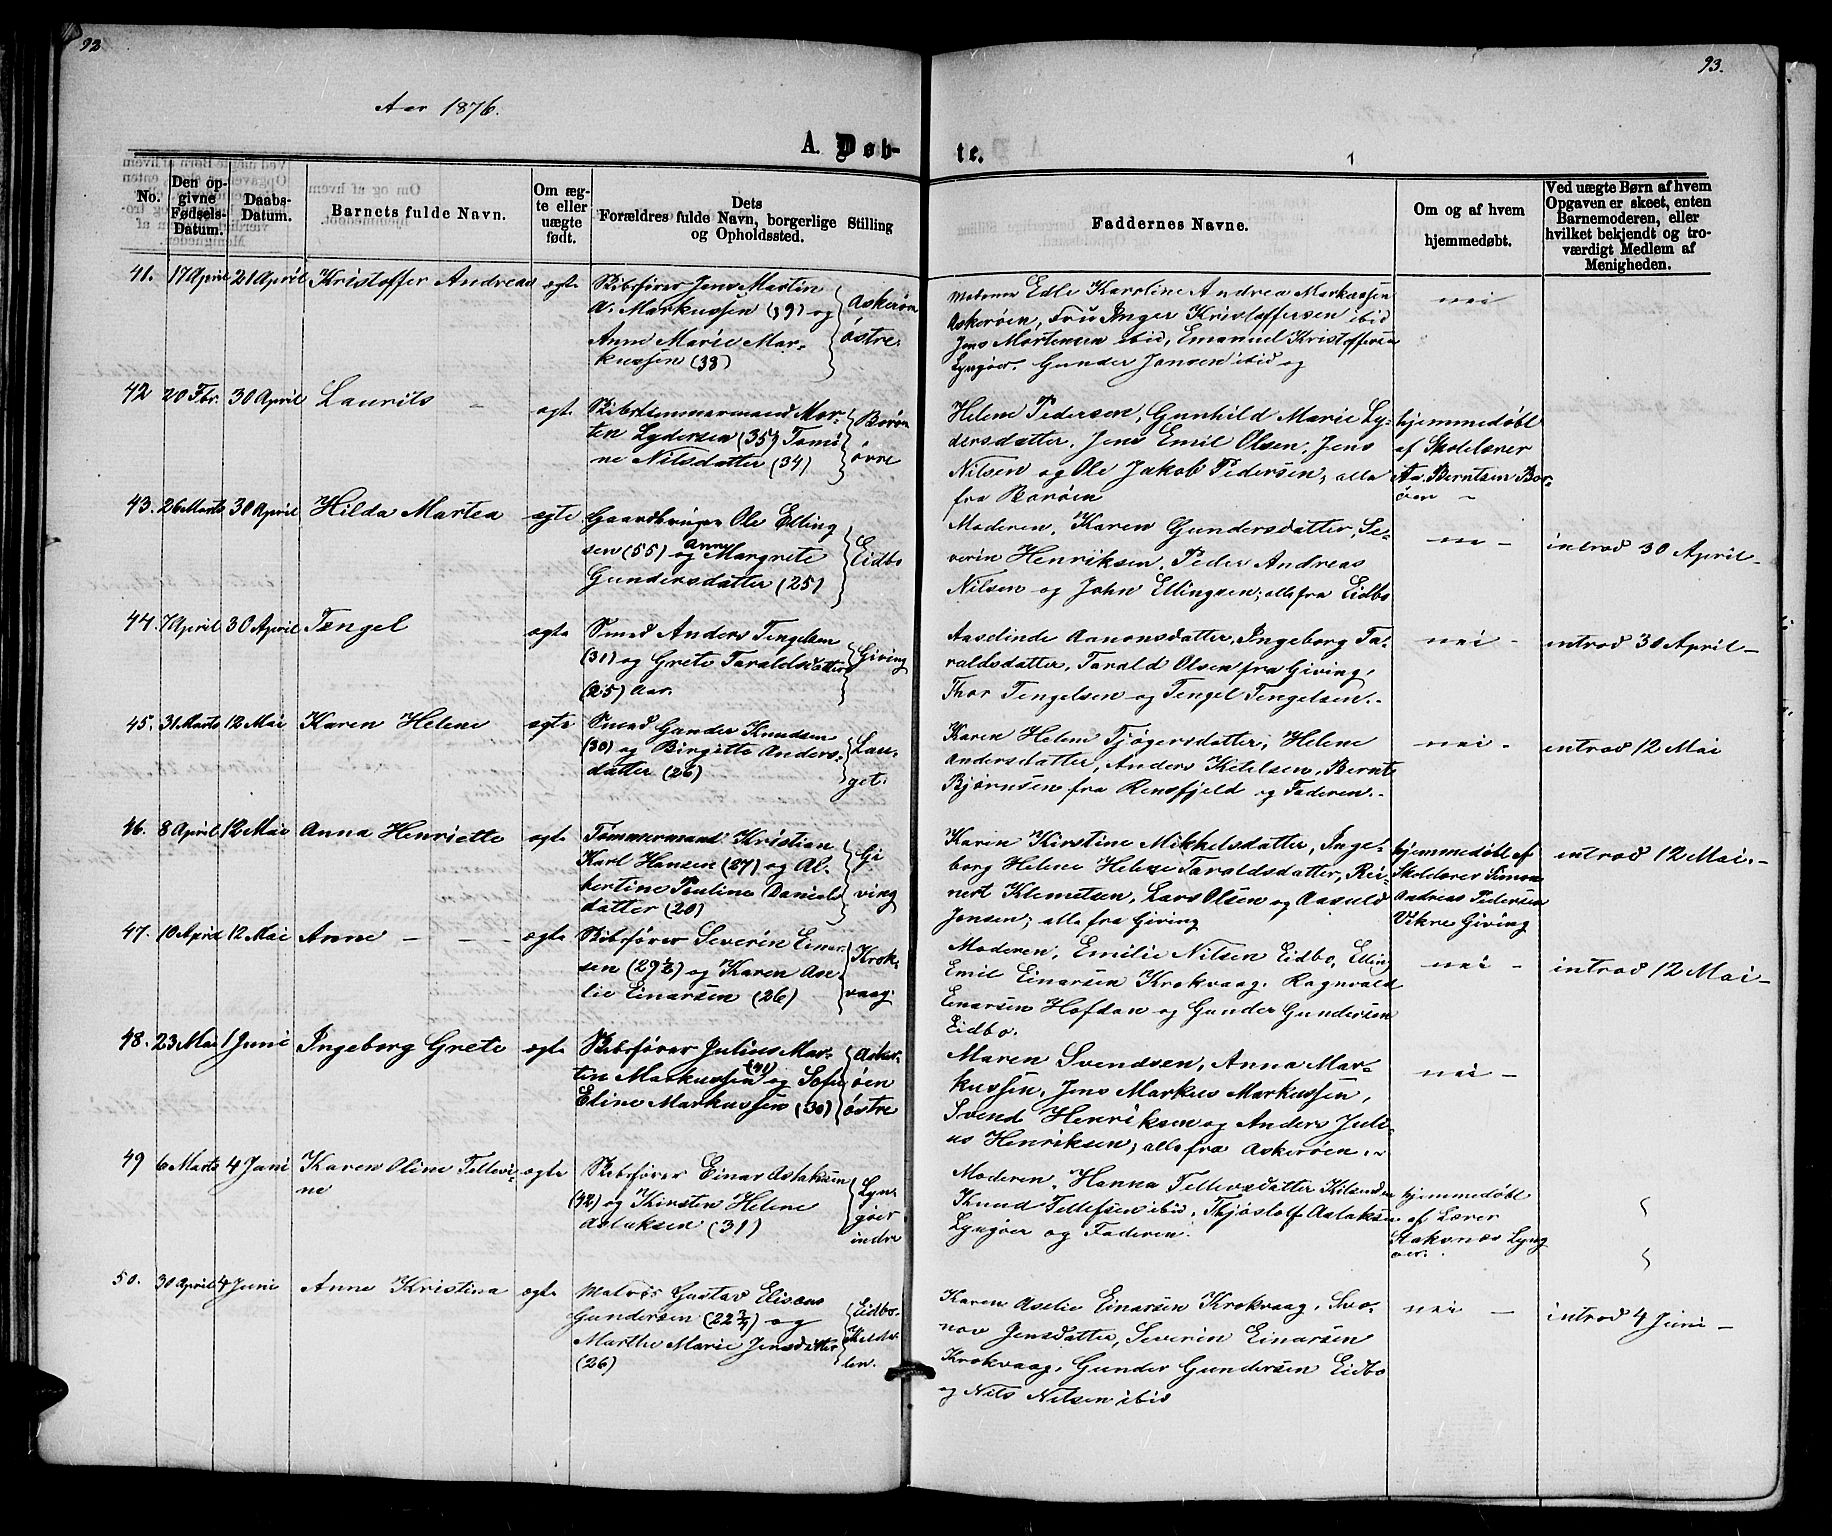 92
93.
Aar 1876.
A. Døb-
te.
No.
Den op-
givne
Fødsels-
Datum.
Daabs-
Datum.
Barnets fulde Navn.
Om æg-
te eller
uægte
født.
Dets
Forældres fulde Navn, borgerlige Stilling
og Opholdssted.
Faddernes Navne.
Om og af hvem
hjemmedøbt.
Ved uægte Børn af hvem
Opgaven er skeet, enten
Barnemoderen, eller
hvilket bekjendt og tro-
værdigt Medlem af
Menigheden.
41. 17 April 21 April Kristoffer Andreas ægte
Skibsfører Jens Martin
A. Markussen (39) og
Anne Marie Mar-
kussen (33)
Askerøen
østre.
Edle Karoline Andrea Markussen
Askerøen, Fru Inger Kristoffersen ibid
Jens Mortensen ibid, Emanuel Kristoffersen
Lyngøer. Gunder Jensen ibid og
nei
42 20 Fbr. 30 April Laurits ægte
Skibstømmermand Mor-
ten Lydersen (35) Tomi-
ne Nilsdatter (34)
Borøen
øvre
Helene Pedersen, Gunhild Marie Ly-
dersdatter, Jens Emil Olsen, Jens
Nilsen og Ole Jakob Pedersen, alle
fra Borøen
hjemmedøbt
af Skolelærer
Aa. Berntsen Bor-
øen
43. 26 Marts 30 April Hilda Martea ægte
Gaardbruger Ole Elling
sen (55) og Anne Margrete
Gundersdatter (25)
Eidbo
Moderen, Karen Gundersdatter, Se-
verin Henriksen, Peder Andreas
Nilsen og John Ellingsen; alle fra Eidbo
nei -
introd 30 April -
44. 7 April 30 April Tengel ægte
Smed Anders Tengelsen
(31) og Grete Taraldsdatter
(25) Aar.
Giving
Aaselinde Aanonsdatter, Ingeborg Ta-
raldsdatter, Tarald Olsen fra Giving,
Thor Tengelsen og Tengel Tengelsen.
nei -
introd 30 April -
45. 31 Marts 12 Mai Karen Helene ægte
Smed Gunder Knudsen
(30) og Birgitte Anders-
datter (26)
Lau-
get.
Karen Helene Tjøgersdatter, Helene
Andersdatter, Anders Ketelsen, Bernt
Bjørnsen fra Rensfjeld og Faderen.
nei -
introd 12 Mai
46. 8 April 12 Mai Anna Henriette ægte
Tømmermand Kristian
Karl Hansen (27) og Al-
bertine Pauline Daniels
datter (20)
Gi
ving
Karen Kirstine Mikkelsdatter, Inge-
borg Helene Helene Taraldsdatter, Rei-
nert Klemetsen, Lars Olsen og Aasuld
Jensen; alle fra Giving
hjemmedøbt af
Skolelærer Simon
Andreas Pedersen
Vikre Giving
introd 12 Mai. -
47. 10 April 12 Mai Anne - - - ægte
Skibsfører Severin Einar-
sen (29½) og Karen Ase-
lie Einarsen (26)
Krok-
vaag.
Moderen, Emilie Nilsen Eidbo, Elling
Emil Einarsen Krokvaag, Ragnvald
Einarsen Hofdan og Gunder Gundersen
Eidbo.
nei -
introd 12 Mai -
48. 23 Mai 1 Juni Ingeborg Grete ægte
Skibsfører Julius Mar-
tin Markussen (41) og Sofie
Eline Markussen (30)
Asker-
øen
østre
Maren Svendsen, Anna Mar-
kussen, Jens Markus Markussen,
Svend Henriksen og Anders Juli-
us Henriksen; alle fra Askerøen.
nei -
49 6 Marts 4 Juni Karen Oline Tellevi-
ne
ægte
Skibsfører Einar Aslaksen
(42) og Kirsten Helene
Aslaksen (31)
Lyn-
gøer
indre
Moderen, Hanna Tellevsdatter
Knud Tellefsen ibid, Thjøstolf Aslaksen
Lyngøer og Faderen.
hjemmedøbt
af Lærer
Staknæs Lyng
øer.
50. 30 April 4 Juni Anne Kristina ægte
Matros Gustav Elisæus
Gundersen (22¾) og
Marthe Marie Jensdatter
(26)
Eidbo-
Kilde-
len.
Karen Aselie Einarsen Krokvaag,
Jensdatter, Severin Einarsen
Krokvaag, Gunder Gundersen Eidbo
og Nils Nilsen ibid
nei -
introd 4 Juni -